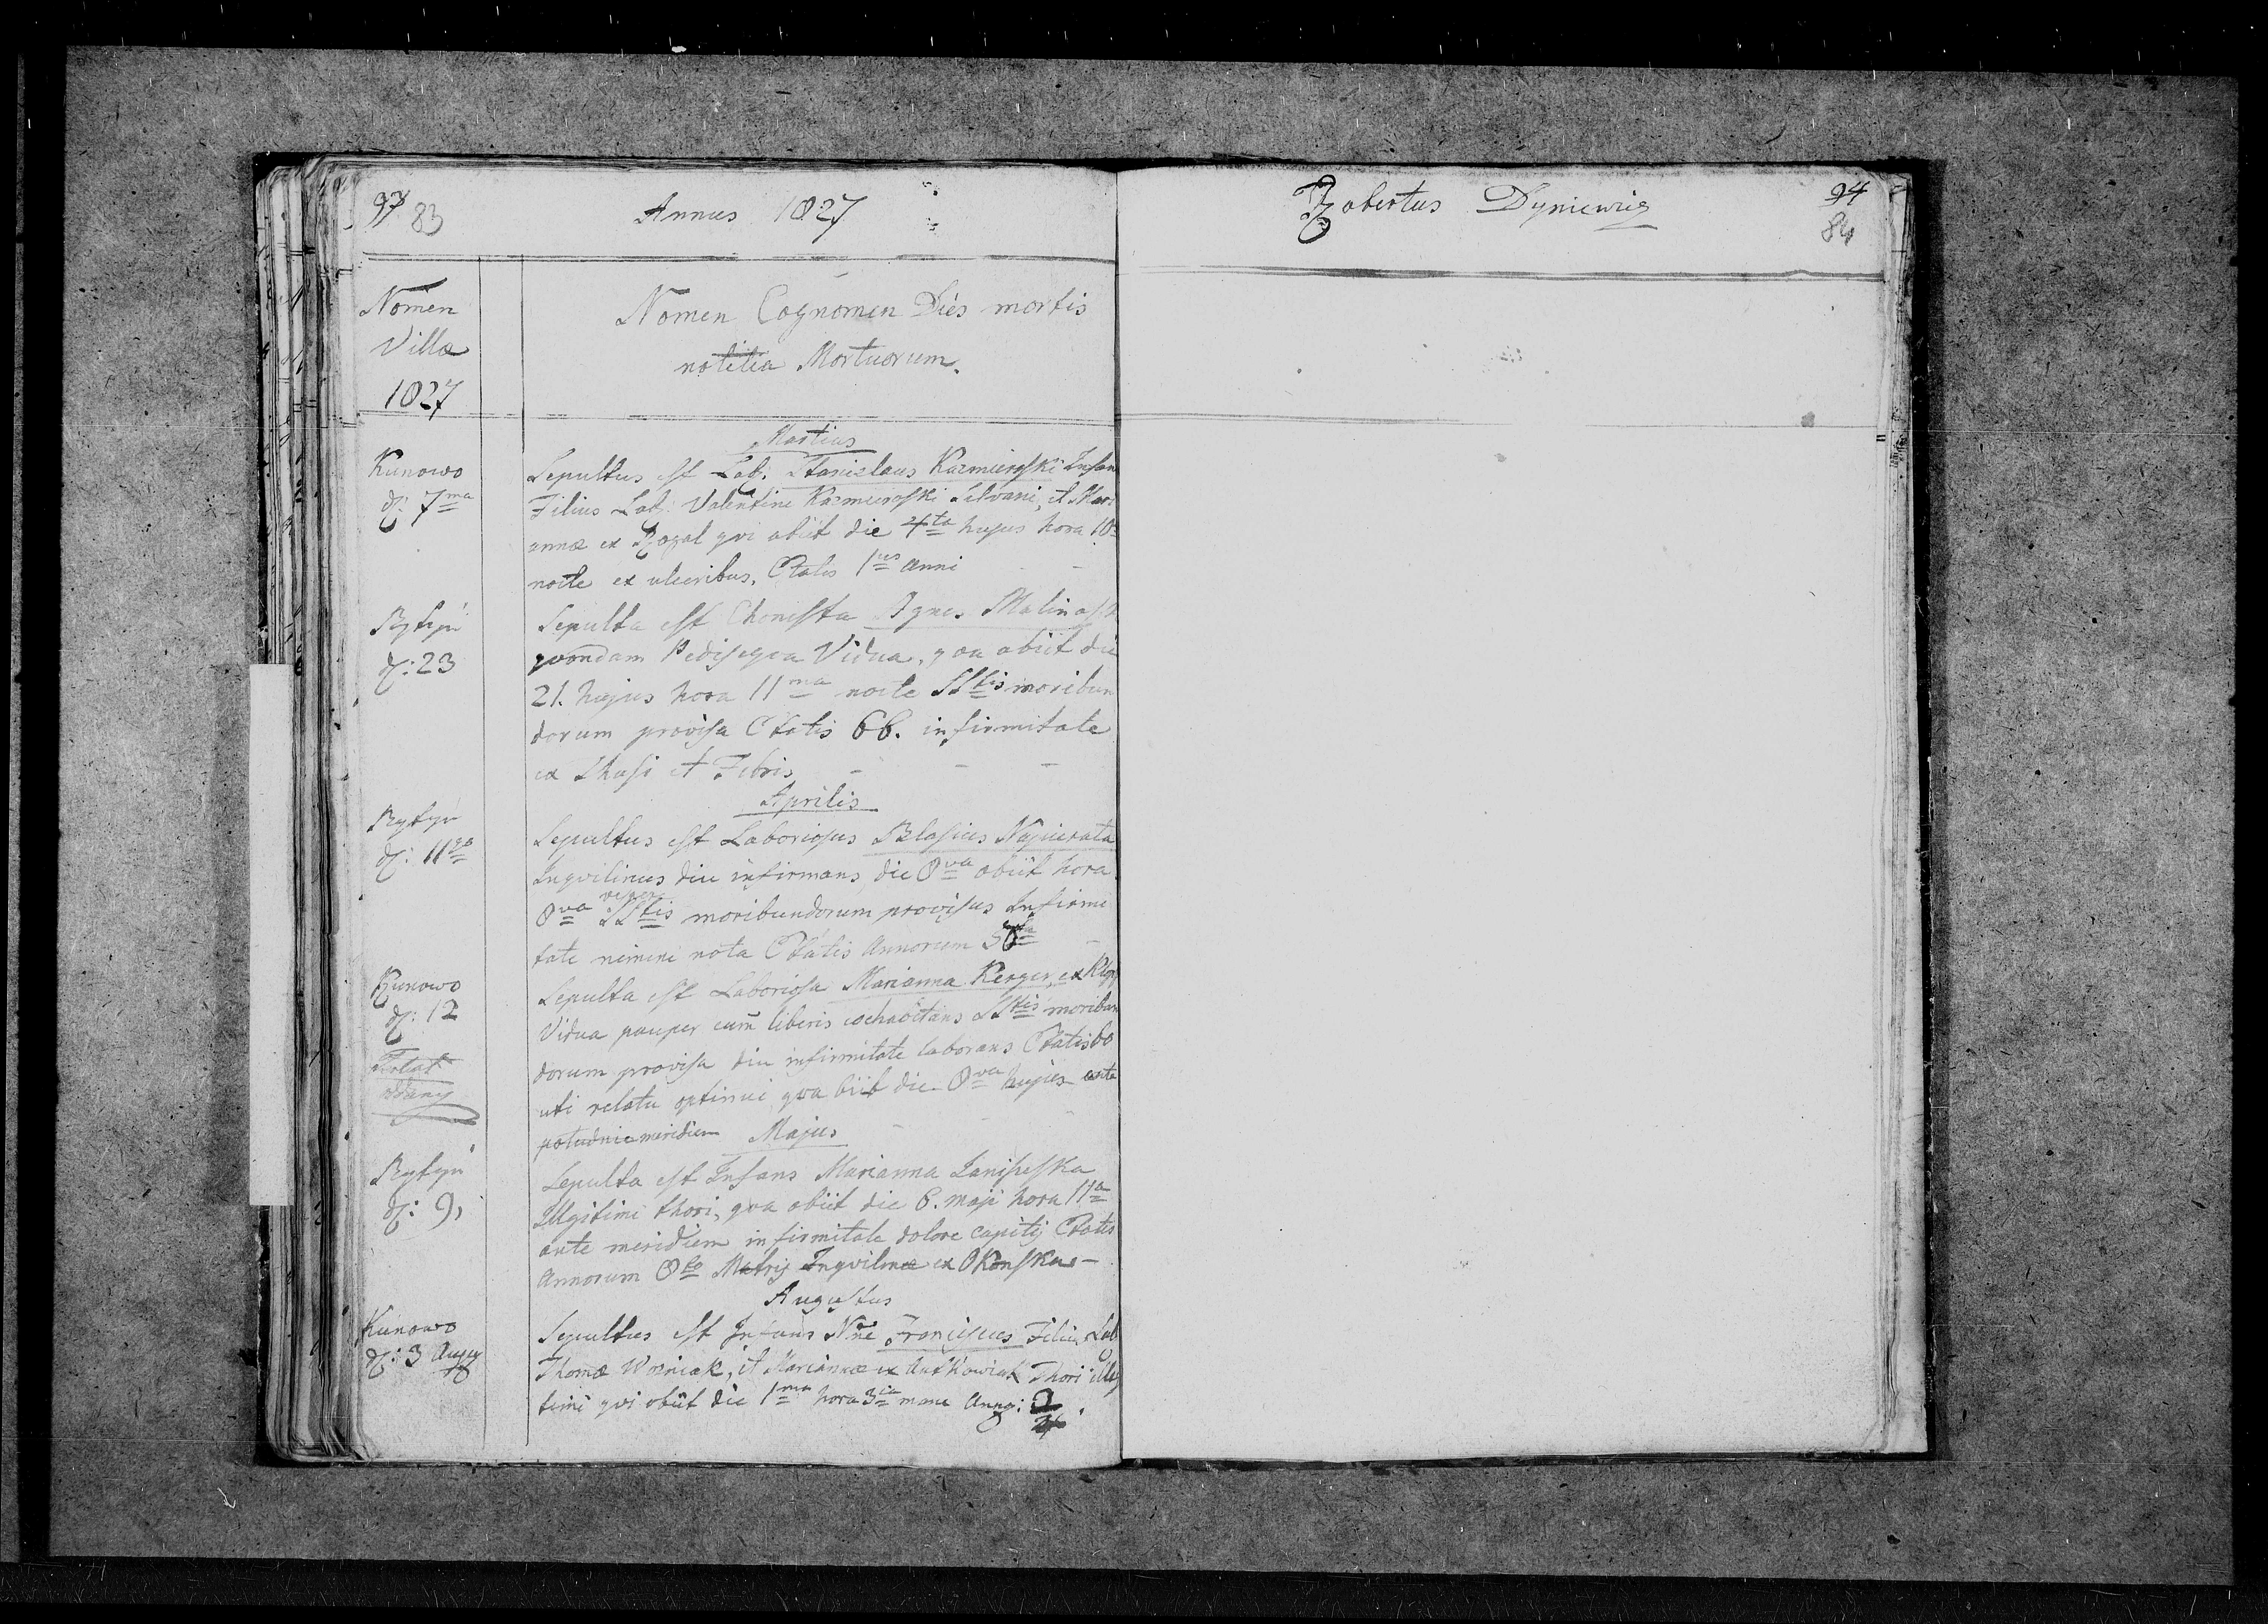 97 83
Annus 1827
Nomen
Villæ
1827
Nomen Cognomen Dies mortis
notitia Mortuorum.
Martius
Kunowo
d: 7ma
Sepultus est Lab: Stanislaus Kazmieroski Infan
Filius Lab: Valentini Kazmieroski Silvani, et Mari
annæ ex Rogal qvi obiit die 4ta hujus hora 10
nocte ex ulceribus. Etatis 1us Anni
d: 23
Sepulta est Chonesta Agnes
qvondam Pediseqva Vidua, qva obiit die
21. hujus hora 11ma nocte SStis moribun
dorum provisa Etatis 66. infirmitate
ex et Febris
Aprilis
d: 11
Sepultus est Laboriosus Blasius Napierata
Inqvilinus diu infirmans die 8va obiit hora
8va vesper SStis moribundorum provisus Infirmi
tate nemini nota Etatis Annorum
Kunowo
d: 12
Sepulta est Laboriosa Marianna Kerger, ex
Vidua pauper cum liberis SStis moribun
dorum provisa diu infirmitate laborans Etatis 60
uti relatu optinui qva biit die 8va hujus ante
południe meridiem
Majus
d: 9
Sepulta est Infans Marianna
Illgitimi thori, qva obiit die 6. maji hora 11a
ante meridiem infirmitate dolore capitis Etatis
Annorum 8to Matris Inqvilinæ ex Okonska
Augustus
Kunowo
d: 3 Augu
Sepultus est Infans Nne Franciscus Filius Lab
Thomæ Wozniak, et Mariannæ ex Antkowiak Thori illegi
timi qvi obiit die 1ma hora 3ia mane
Robertus Dyniewicz
94
84